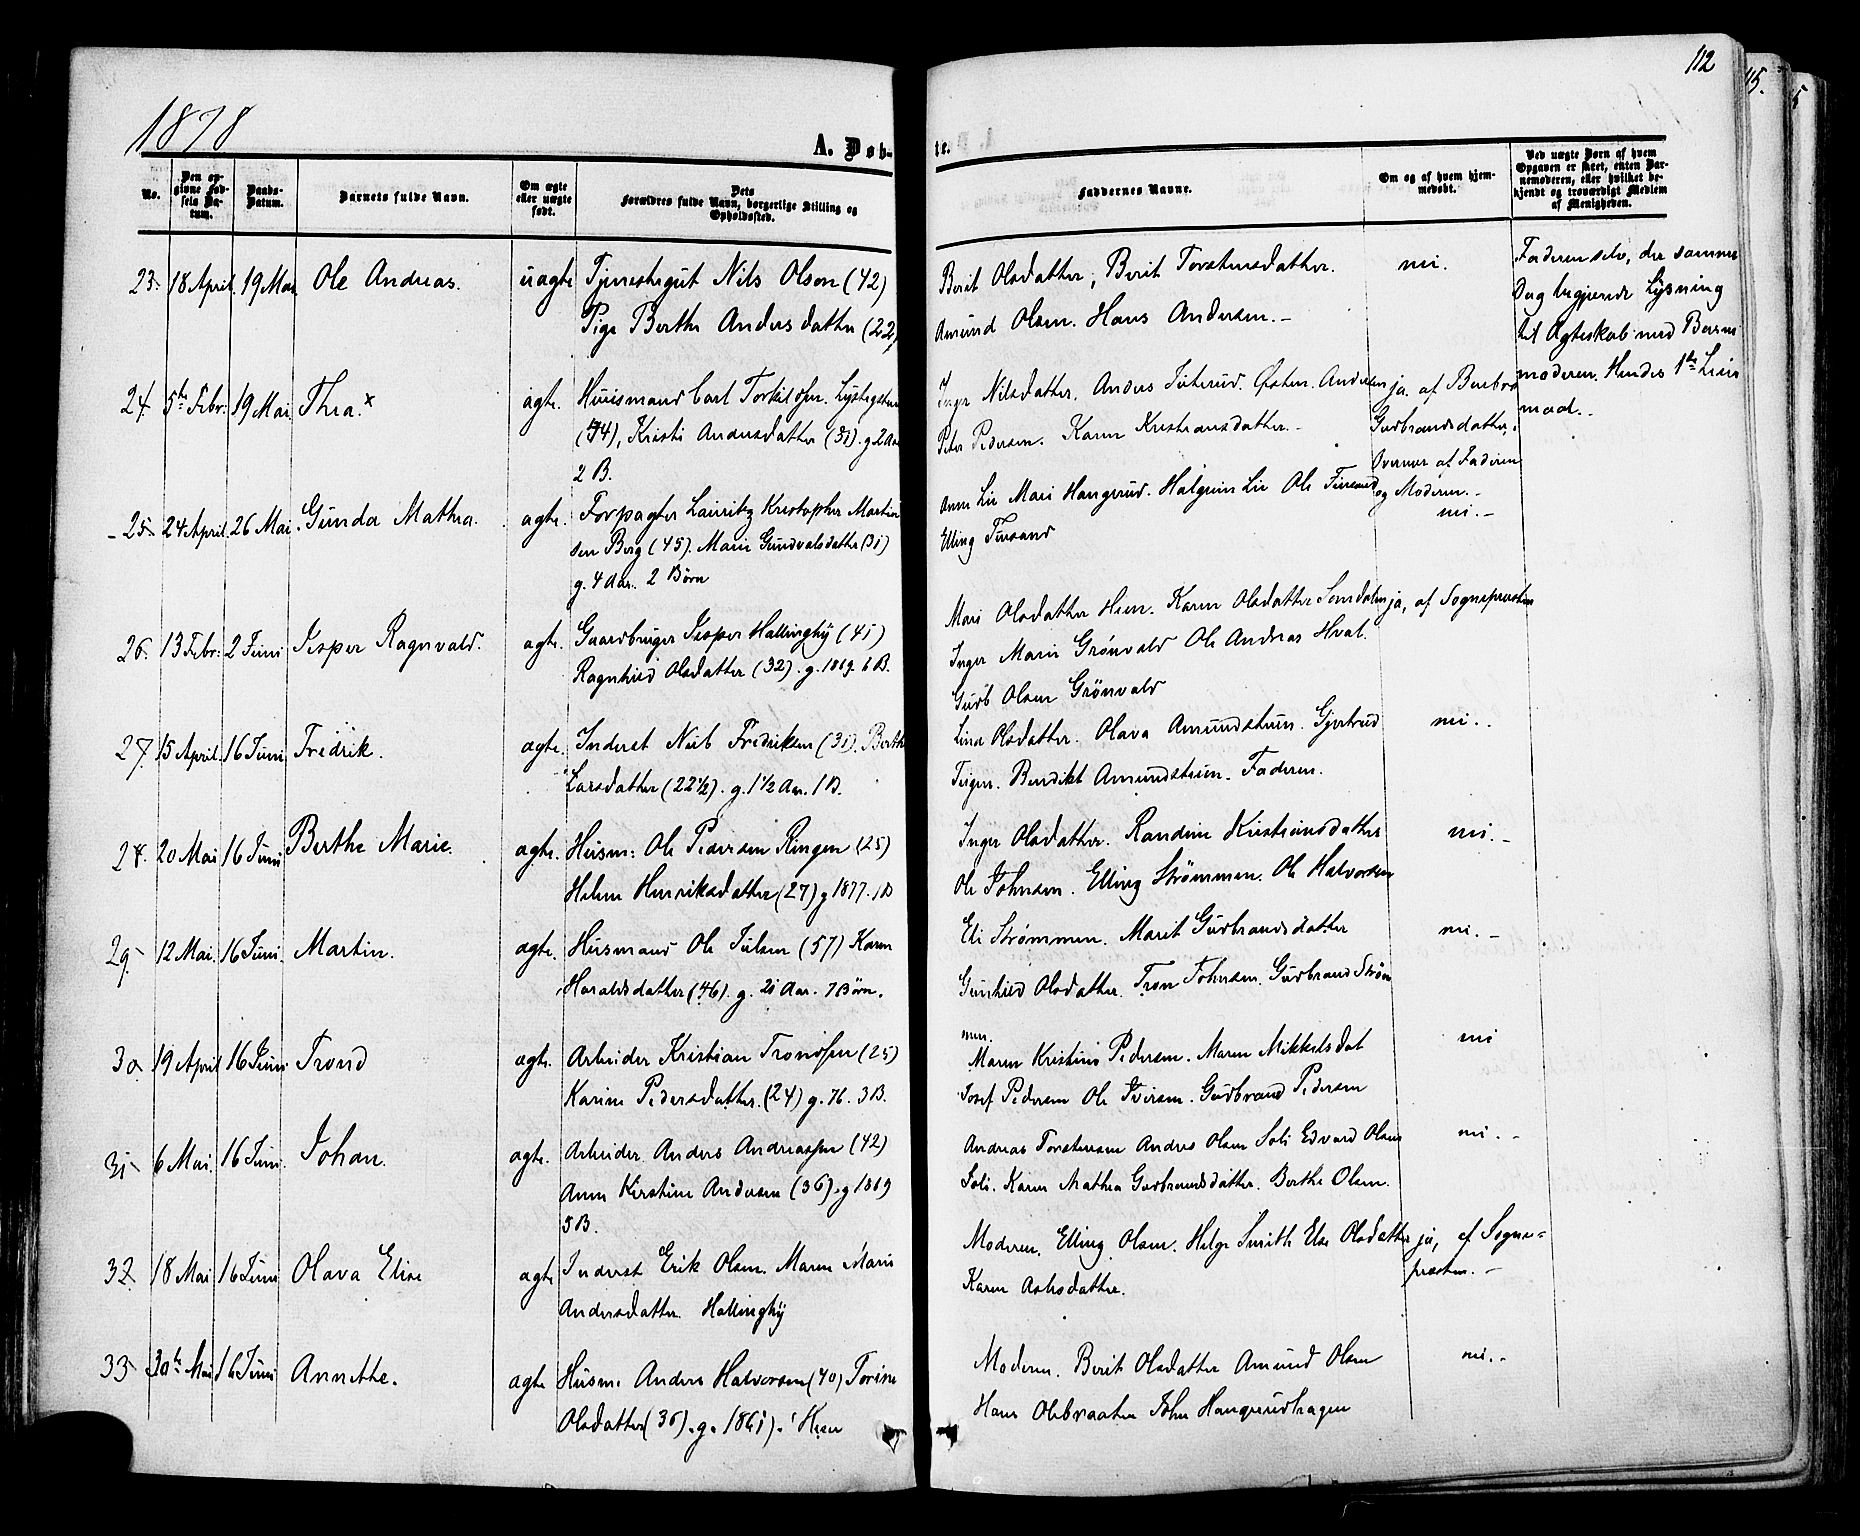 112
115.
5
1878
A. Døb-
te.
No.
Den op-
givne Fød-
sels Da-
tum.
Daabs-
Datum.
Barnets fulde Navn.
Om ægte
eller uægte
født.
Dets
Forældres fulde Navn, borgerlige Stilling og
Opholdssted.
Faddernes Navne.
Om og af hvem hjem-
medøbt.
Ved uægte Børn af hvem
Opgaven er skeet, enten Bar-
nemoderen, eller hvilket be-
kjendt og troværdigt Medlem
af Menigheden.
23. 18 April. 19 Mai Ole Andreas. uægte Tjenestegut Nils Olsen (42)
Pige Berthe Andersdatter (22)
Berit Olsdatter, Berit Torstensdatter.
Amund Olsen. Hans Andersen. –
nei.
Faderen selv, der samme
Dag begjærede Lysning
til Ægteskab med Barne
moderen. Hendes 1ste Leier
maal. –
24. 5te Febr. 19 Mai. Thea. x ægte. Huusmand Carl Torkilsen
(34), Kristi Andersdatter (31). g. 2 Aar
2 B.
Inger Nilsdatter. Anders Østen. Andersen
Peter Pedersen. Karen Kristiansdatter. –
ja. af Barbro
Gudbrandsdatter,
Faderen
og Moderen. –
25 24 April. 26 Mai. Gunda Mathea. ægte. Forpagter Lauritz Kristopher Martin
sen Berg (45). Marie Gundvalsdatter (31)
g. 4 Aar. 2 Børn
Anne Lie Mari Haugerud. Halgrim Lie Ole
Elling
nei. –
26. 13 Febr. 2 Juni Jesper Ragnvald. ægte. Gaardbruger Jesper Hallingby (41)
Ragnhild Olsdatter (32). g. 1869. 6 B.
Mari Olsdatter Heen. Karen Olsdatter
Inger Marie Grønvold Ole Andreas Hval.
Gudb Olsen Grønvold
ja, af Sognepræsten
27. 15 April. 16 Juni Fredrik. ægte. Inderst Nils Fredriksen (31). Berthe
Larsdatter (22½). g. 1½ Aar. 1 B.
Lina Olsdatter. Olava Amundstuen. Gjertrud
Teigen. Bendikt Amundstuen. Faderen.
nei. .
28. 20 Mai 16 Juni Berthe Marie. ægte. Husm: Ole Pedersen Ringen (25)
Helene Henriksdatter (27) g 1877. 1 B
Inger Olsdatter. Randine Kristiansdatter
Ole Johnsen. Elling Strømmen. Ole Halvorsen
nei. –
29. 12 Mai. 16 Juni. Martin. ægte. Husmand Ole Julsen (57) Karen
Haraldsdatter (46). g. 21 Aar. 7 Børn.
Eli Strømmen. Marit Gudbrandsdatter
Gunhild Olsdatter. Tron Johnsen. Gudbrand Strøm
men.
nei. –
30. 19 April 16 Juni Trond ægte. Arbeider Kristian Trondsen (25)
Karine Pedersdatter. (24) g. 76. 3 B.
Maren Kristine Pedersen. Maren Mikkelsdat
Josef Pedersen Ole Iversen. Gudbrand Pedersen
nei
31 6 Mai. 16 Juni. Johan. ægte. Arbeider Anders Andreassen (42)
Anne Kirstine Andersen (36). g 1869
5 B.
Andreas Torstensen Andres Olsen Soli Edvard Olsen
Soli. Karen Mathea Gudbrandsdatter. Berthe Olsen.
nei. –
32. 18 Mai 16 Juni Olava Elise ægte Inderst Erik Olsen. Maren Marie
Andersdatter. Hallingby
Moderen. Elling Olsen. Helge Smith Else Olsdatter
Karen Aslesdatter.
ja, af Sogne-
præsten. –
33 30te Mai 16 Juni Annethe. ægte Husm. Anders Halvorsen (40) Torine
Olsdatter (36). g. 1861). Heen
Moderen. Berit Olsdatter Amund Olsen
Hans Olebraaten John Haugerudhagen
nei. –